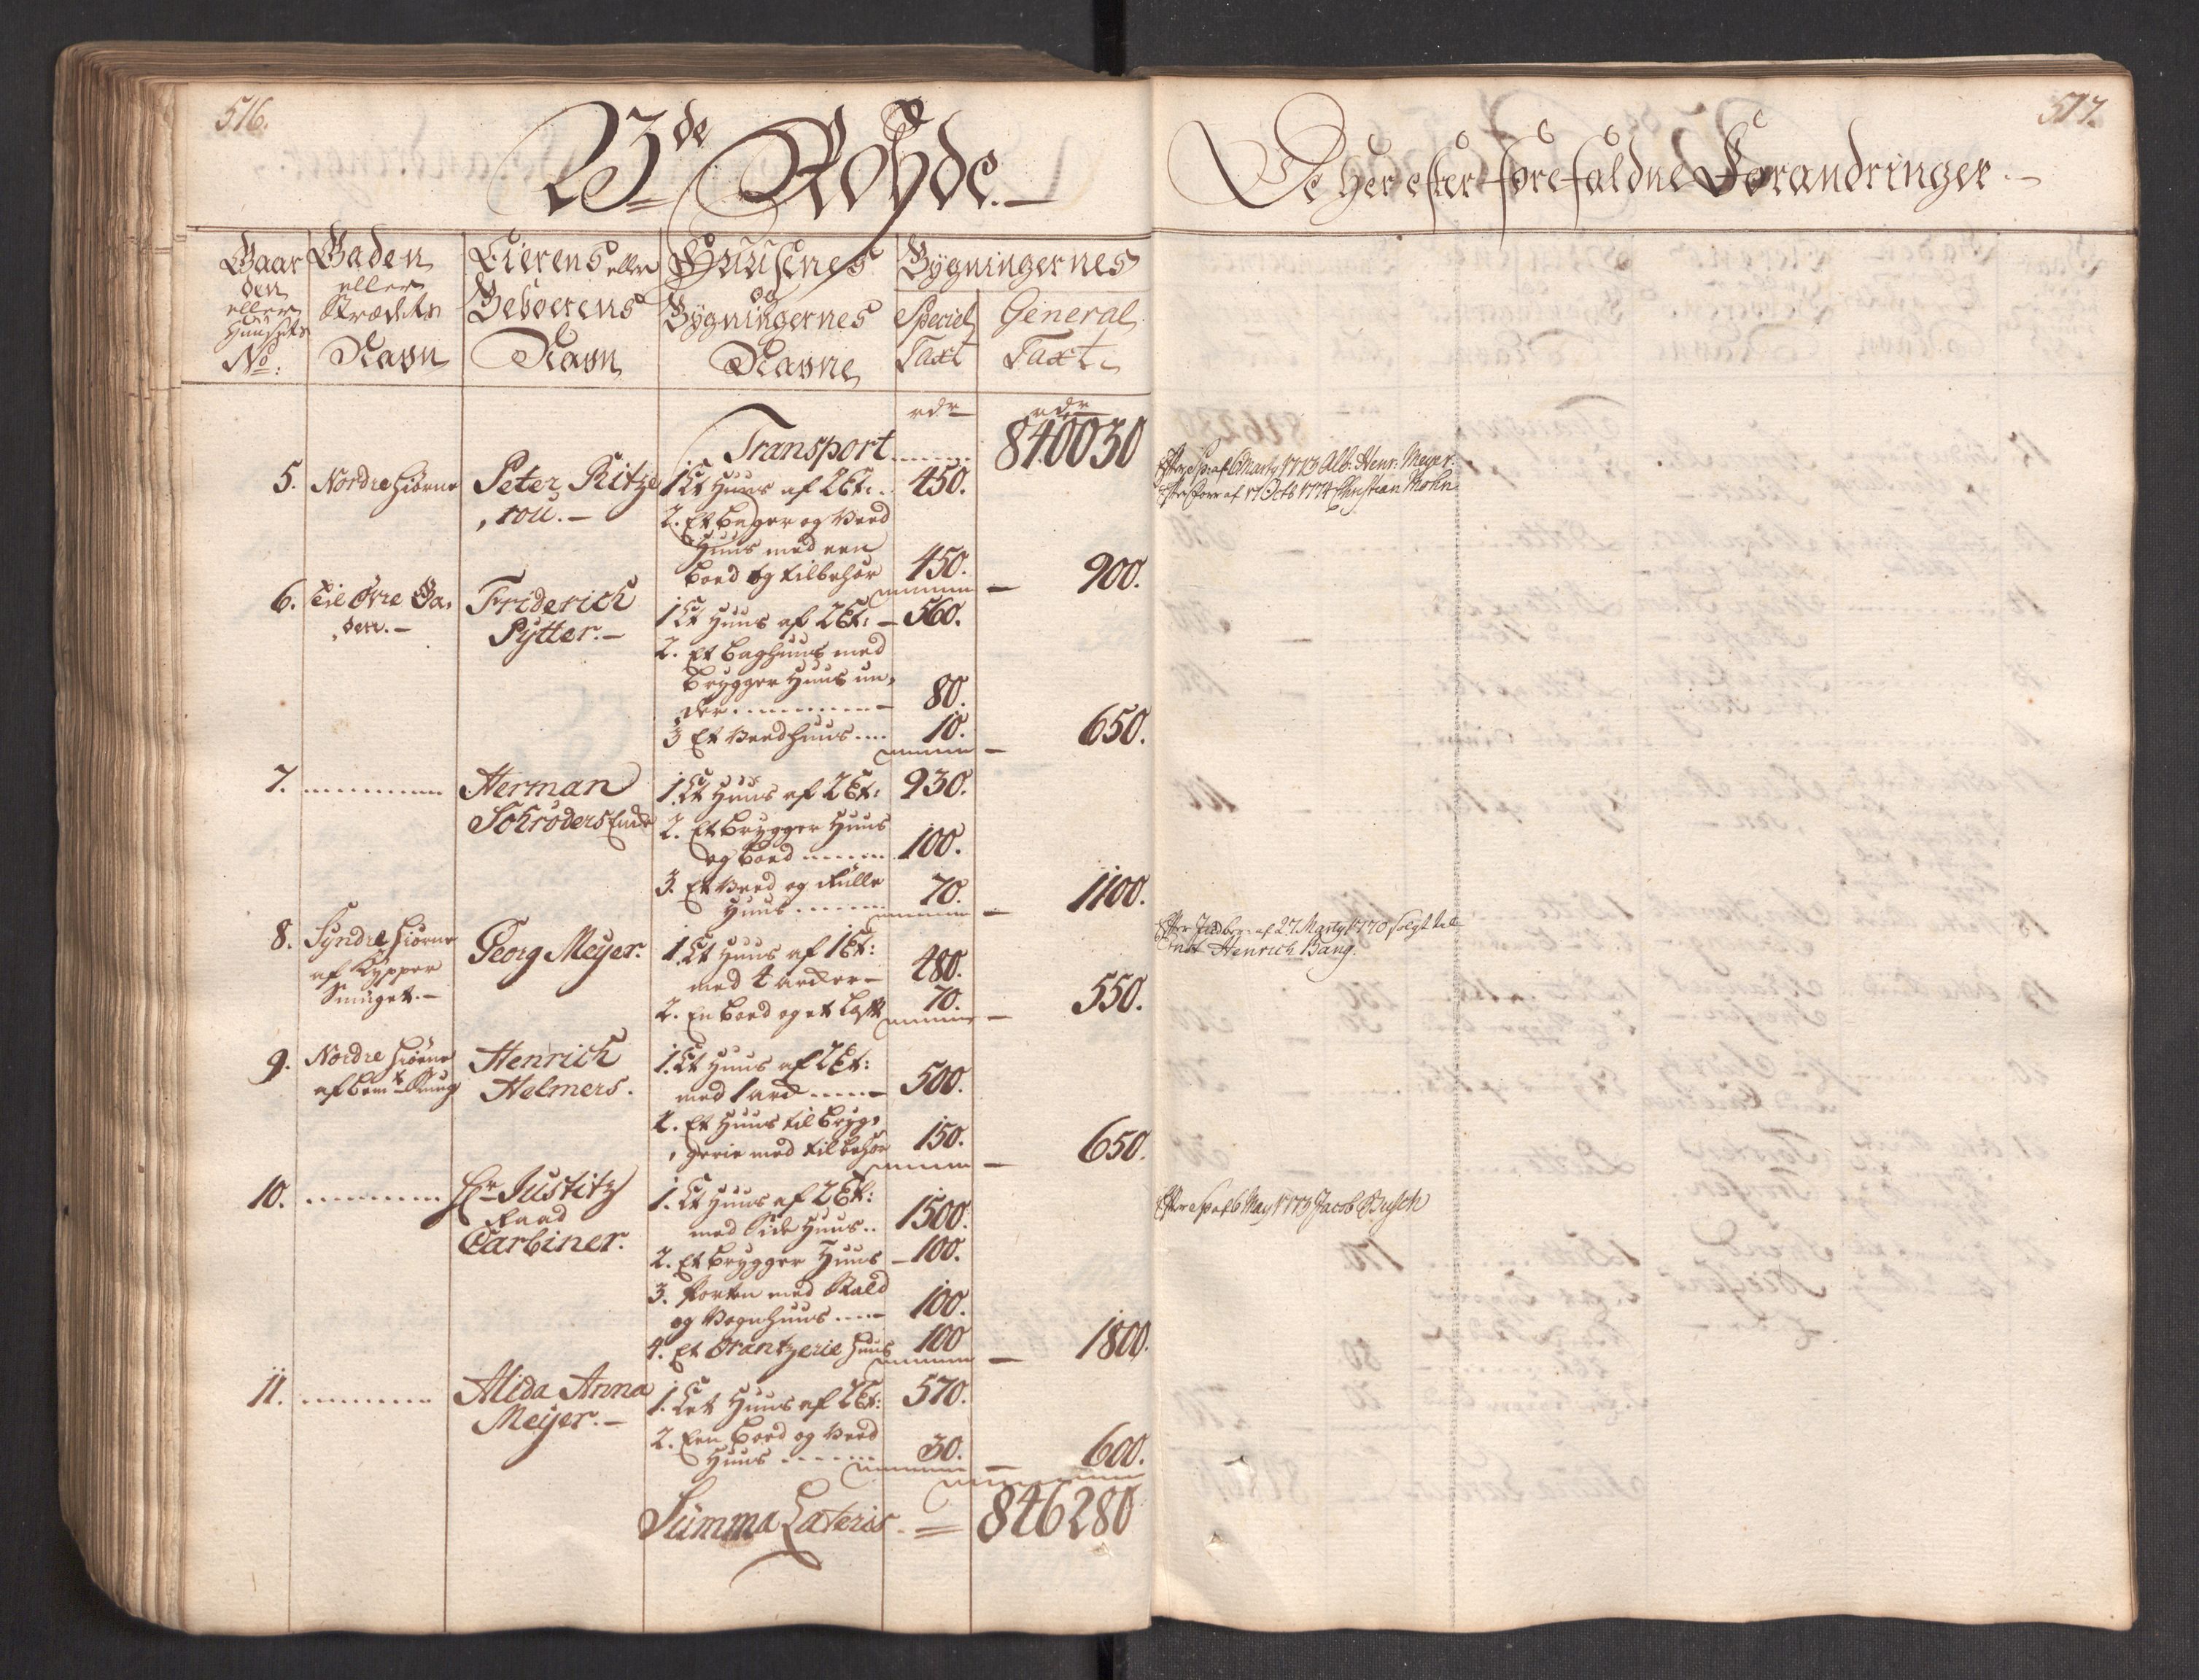 516.
23de Røyde.
Gaar
den
eller
Huusets
No:
Gaden
eller
Strædets
Navn
Eierens eller
Beboerens
Navn
Huusenes
og
Bygningernes
Navne
Bygningernes
Speciel
Taxt
General
Taxt
rdr
rdr
Transport
840030
5. Nordre Hiørne
Peter Ritze
rou.
1. Et Huus af 2 Et: 450.
2. Et Bryger og Veed
Huus med een
Boed og tilbehør 450. 900.
6. Til Øvre Ga,
den.
Friderich
Pytter.
1. Et Huus af 2 Et: 560.
2. Et Baghuus med
Brygger Huus un,
der 80.
3 Et Veedhuus 10. 650.
7.
Herman
Schrøders Enke
1. Et Huus af 2 Et: 930.
2. Et Brygger Huus
og Boed 100.
3. Et Veed og Rulle
Huus 70. 1100.
8. Syndre Hiørne
af Kypper
Smuget.
Georg Meyer.
1. Et Huus af 1 Et:
med 4 arcker 480.
2. En Boed og et Loft 70. 550.
9. Nordre Hiørne
af bemte Smug
Henrich
Helmers.
1. Et Huus af 2 Et:
med 1 arck 500.
2. Et Huus til Bryg,
gerie med tilbehør 150. 650.
10.
Hr Justitz
Raad
Carbiner.
1. Et Huus af 2 Et:
med Side Huus 1500.
2. Et Brygger Huus 100.
3. Porten med Stald
og Vognhuus 100.
4. Et Orantzerie Huus 100 1800.
11.
Alida Anna
Meyer.
1. Eet Huus af 2 Et: 570.
2. Een Boed og Veed
Huus 30. 600.
Summa Lateris = 846280
517.
De Her efter forefaldne Forandringer
Efter af 6 Marty 1773 Alb: Henr: Meyer.
Efter Forr af 17 Octb 1774 Christian Mohn
Efter af 27 Marty 1770 solgt til
Henrich Bang.
Efter af 6 May 1773 Jacob Busch